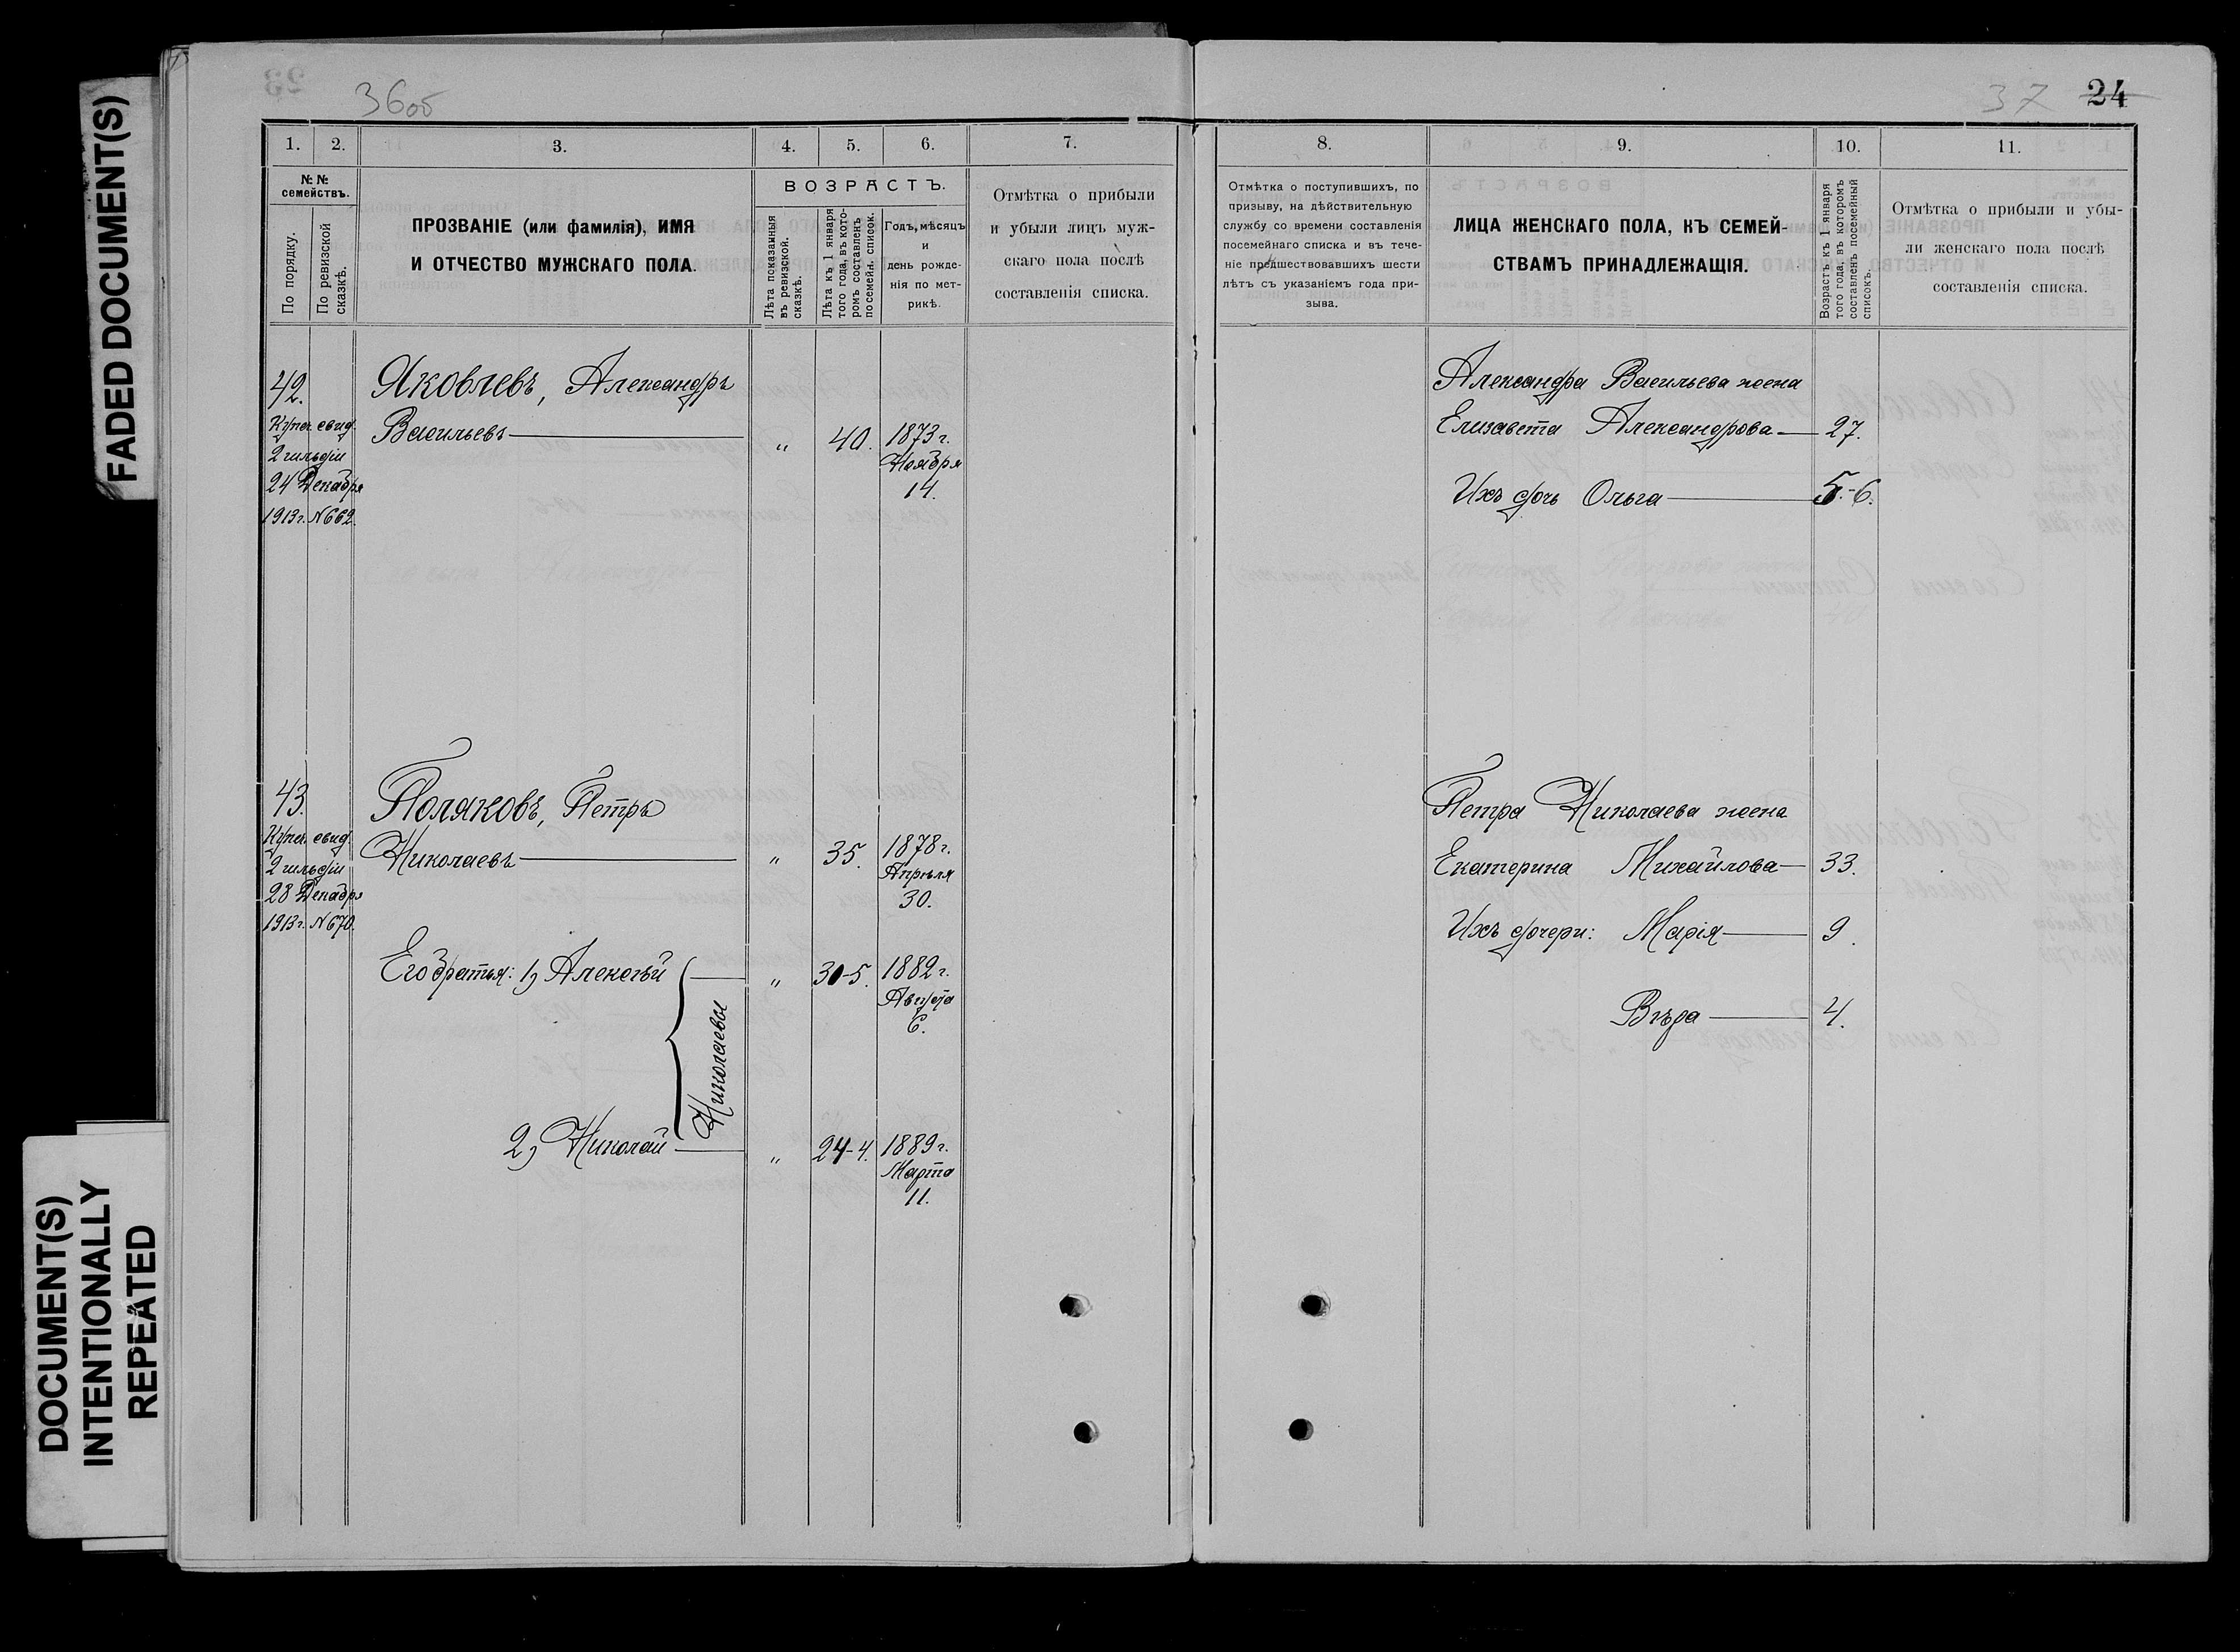 FADED DOCUMENT(S)
DOCUMENT(S)
INTENTIONALLY
REPEATED
36об
1. 2. 3. 4. 5. 6. 7.
№ №
семействъ.
По порядку.
По ревизской
сказкѣ.
ПРОЗВАНІЕ (или фамилія), ИМЯ
И ОТЧЕСТВО МУЖСКАГО ПОЛА.
ВОЗРАСТЪ.
Лѣта показанныя
въ ревизской.
сказкѣ.
Лѣта къ 1 января
того года, въ кото-
ромъ составленъ
посемейн. список.
Годъ, мѣсяцъ
и
день рожде-
нія по мет-
рикѣ.
Отмѣтка о прибыли
и убыли лицъ муж-
скаго пола послѣ
составленія списка.
42.
Купеч. свид.
2 гильдіи
24 Декабря
1913 г. N 662.
Яковлевъ, Александръ
Васильевъ — „ 40. 1873 г.
Ноября
14.
43.
Купеч. свид.
2 гильдіи
28 Декабря
1913 г. N 670.
Поляковъ, Петръ
Николаевъ — „ 35. 1878 г.
Апрѣля
30.
Его братья: 1, Алексѣй — „ 30-5. 1882 г.
Августа
6.
Николаевы
2, Николай — „ 24-4. 1889 г.
Марта
11.
37 24
8. 9. 10. 11.
Отмѣтка о поступившихъ, по
призыву, на дѣйствительную
службу со времени составленія
посемейнаго списка и въ тече-
ніе предшествовавшихъ шести
лѣтъ съ указаніемъ года при-
зыва.
ЛИЦА ЖЕНСКАГО ПОЛА, КЪ СЕМЕЙ-
СТВАМЪ ПРИНАДЛЕЖАЩІЯ.
Возрастъ къ 1 января
того года, въ которомъ
составленъ посемейный
списокъ.
Отмѣтка о прибыли и убы-
ли женскаго пола послѣ
составленія списка.
Александра Васильева жена
Елизавета Александрова — 27.
Ихъ дочь Ольга — 5.-6.
Петра Николаева жена
Екатерина Михайлова — 33.
Ихъ дочери: Марія — 9.
Вѣра — 4.